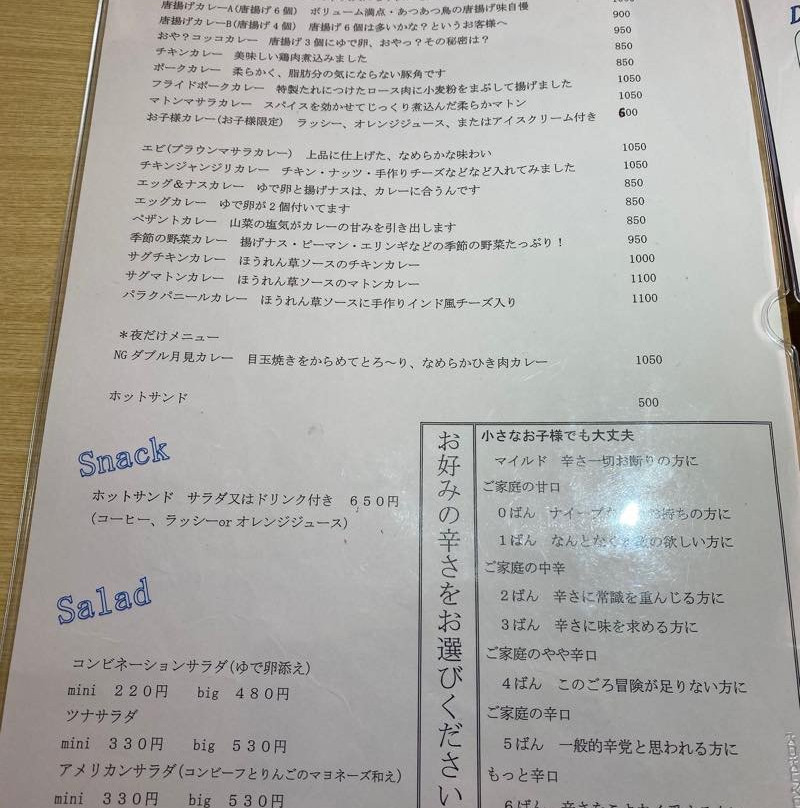 唐揚げカレーA(唐揚げ6個) ボリューム満点・あつあつ鳥の唐揚げ味自慢 900
唐揚げカレーB(唐揚げ4個) 唐揚げ6個は多いかな?というお客様へ 950
おや?コッコカレー 唐揚げ3個にゆで卵、おやっ?その秘密は? 850
チキンカレー 美味しい鶏肉煮込みました 850
ポークカレー 柔らかく、脂肪分の気にならない豚角です 1050
フライドポークカレー 特製たれにつけたロース肉に小麦粉をまぶして揚げました 1050
マトンマサラカレー スパイスを効かせてじっくり煮込んだ柔らかマトン
お子様カレー(お子様限定) ラッシー、オレンジジュース、またはアイスクリーム付き 600
エビ(ブラウンマサラカレー) 上品に仕上げた、なめらかな味わい 1050
チキンジャンジリカレー チキン・ナッツ・手作りチーズなどなど入れてみました 1050
エッグ&ナスカレー ゆで卵と揚げナスは、カレーに合うんです 850
エッグカレー ゆで卵が2個付いてます 850
ペザントカレー 山菜の塩気がカレーの甘みを引き出します 850
季節の野菜カレー 揚げナス・ピーマン・エリンギなどの季節の野菜たっぷり! 950
サグチキンカレー ほうれん草ソースのチキンカレー 1000
サグマトンカレー ほうれん草ソースのマトンカレー 1100
パラクパニールカレー ほうれん草ソースに手作りインド風チーズ入り 1100
*夜だけメニュー
NGダブル月見カレー 目玉焼きをからめてとろ〜り、なめらかひき肉カレー 1050
ホットサンド 500
Snack
ホットサンド サラダ又はドリンク付き 650円
(コーヒー、ラッシーor オレンジジュース)
Salad
コンビネーションサラダ(ゆで卵添え)
mini 220円 big 480円
ツナサラダ
mini 330円 big 530円
アメリカンサラダ(コンビーフとりんごのマヨネーズ和え)
mini 330円 big 530円
お好みの辛さをお選びください
小さなお子様でも大丈夫
マイルド 辛さ一切お断りの方に
ご家庭の甘口
0ばん ナイーブな 持ちの方に
1ばん なんとなく の欲しい方に
ご家庭の中辛
2ばん 辛さに常識を重んじる方に
3ばん 辛さに味を求める方に
ご家庭のやや辛口
4ばん このごろ冒険が足りない方に
ご家庭の辛口
5ばん 一般的辛党と思われる方に
もっと辛口
6ばん